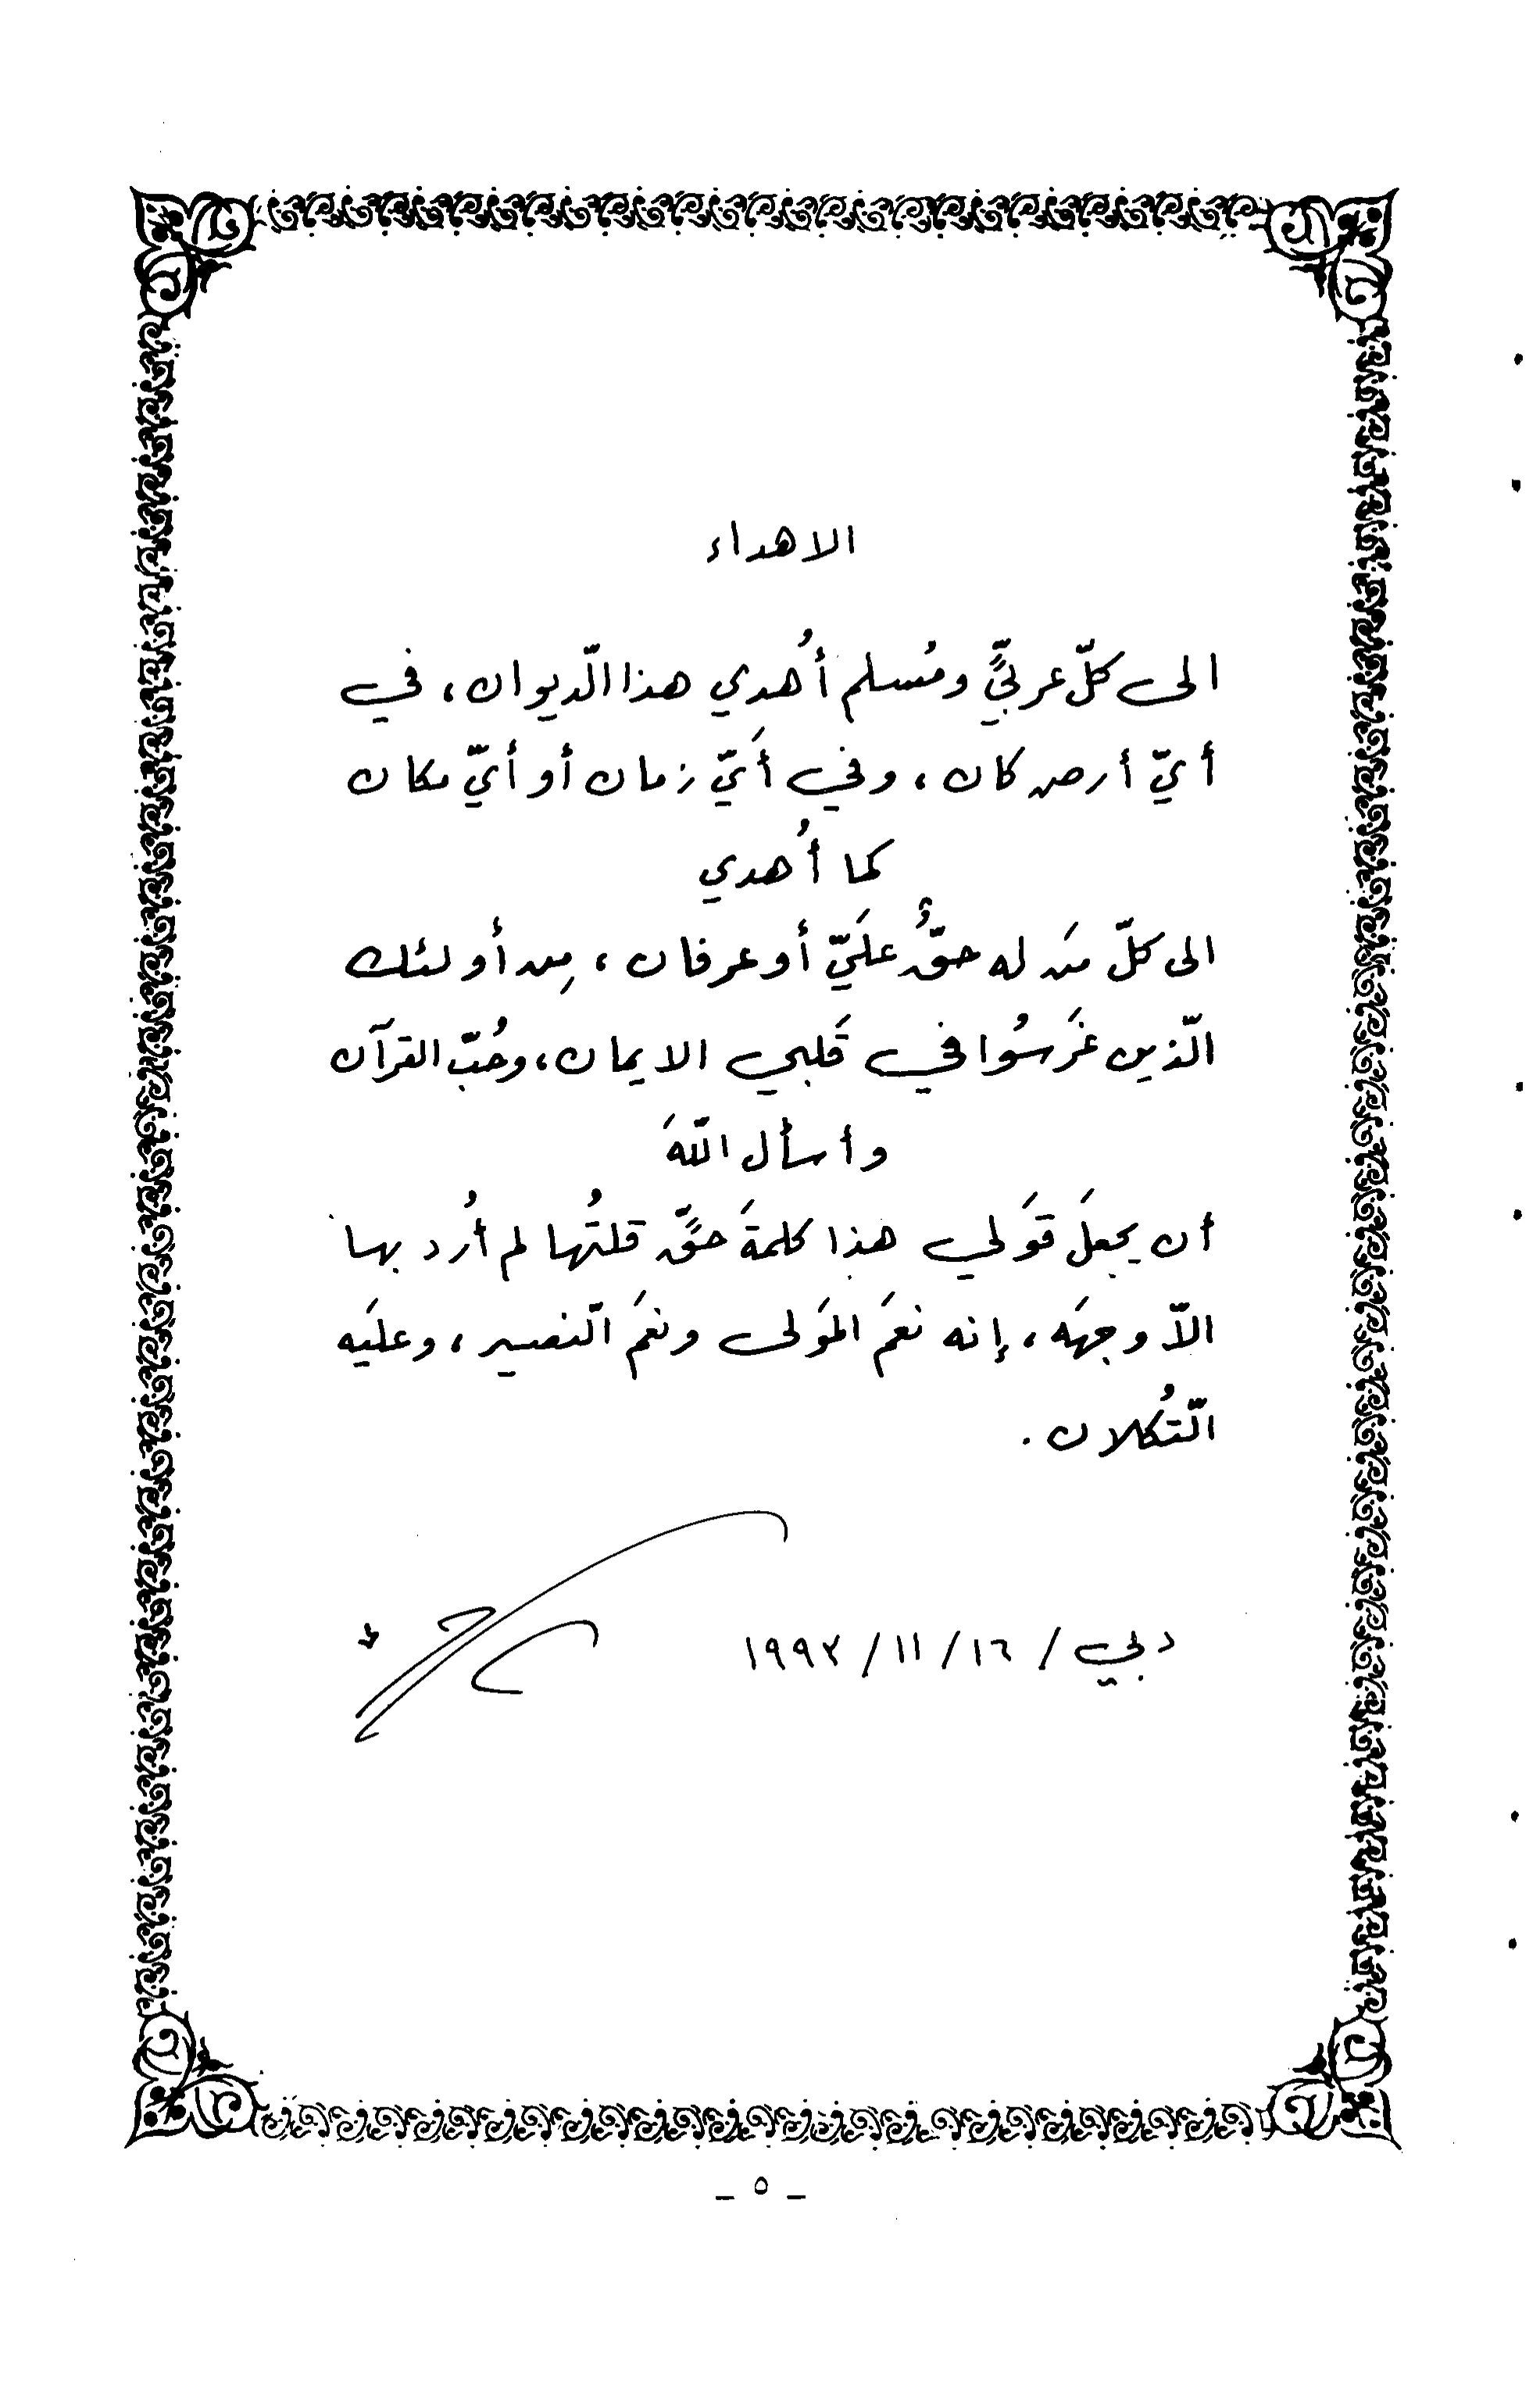 الاهداء
الى كلّ عربيٍّ ومُسلم أُهدي هذا الّديوان، في
أيّ أرض كان، وفي أَيّ زمان أو أيّ مكان
كما أُهدي
الى كلّ مَن له حقٌّ عليّ أو عرفان، مِن أولئك
الّذين غَرسُوا في قَلبي الايمان، وحُبّ القرآن
وأسأل اللّهَ
أن يجعلَ قَولي هذا كلمةَ حقٍّ قلتُها لم أُرد بها
الاّ وجهَه، إنه نعمَ المَولى ونعمَ الّنصير، وعليَه
الّتُكلان.
دبي / ١٦ / ١١ / ١٩٩٣
- ٥ -